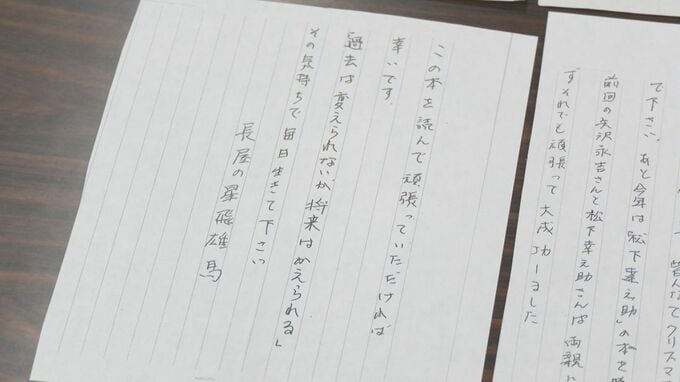 皆んなでクリスマ
で下さい。あと今年は「松下幸之助」の本を
前回の矢沢永吉さんと松下幸之助さんは両親に
ずそれでも頑張って大成功しました
この本を読んで頑張っていただければ
幸いです。
過去は変えられないが将来はかえられる」
その気持ちで毎日生きて下さい
長屋の星飛雄馬